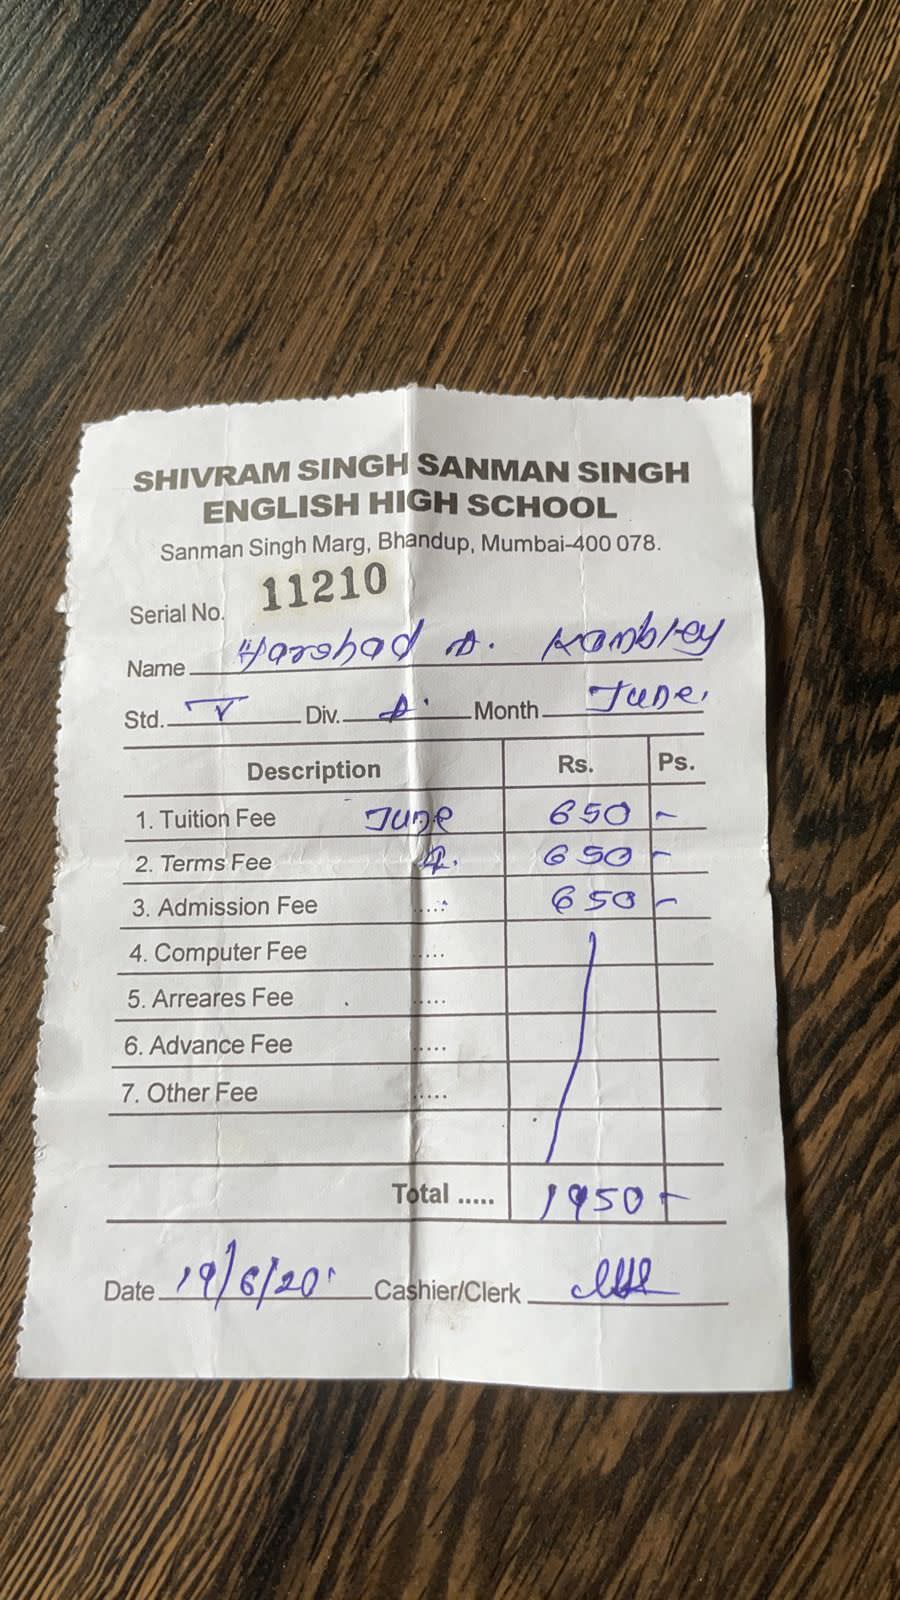 SHIVRAM SINGH SANMAN SINGH
ENGLISH HIGH SCHOOL
Sanman Singh Marg, Bhandup, Mumbai-400 078.
Serial No. 11210
Name Harshad A. Kambley
Std. V Div. A. Month June.
Description Rs. Ps.
1. Tuition Fee June 650 -
2. Terms Fee 650 -
3. Admission Fee ..... 650 -
4. Computer Fee .....
5. Arreares Fee .....
6. Advance Fee .....
7. Other Fee .....
Total ..... 1950 -
Date 19/6/20 Cashier/Clerk